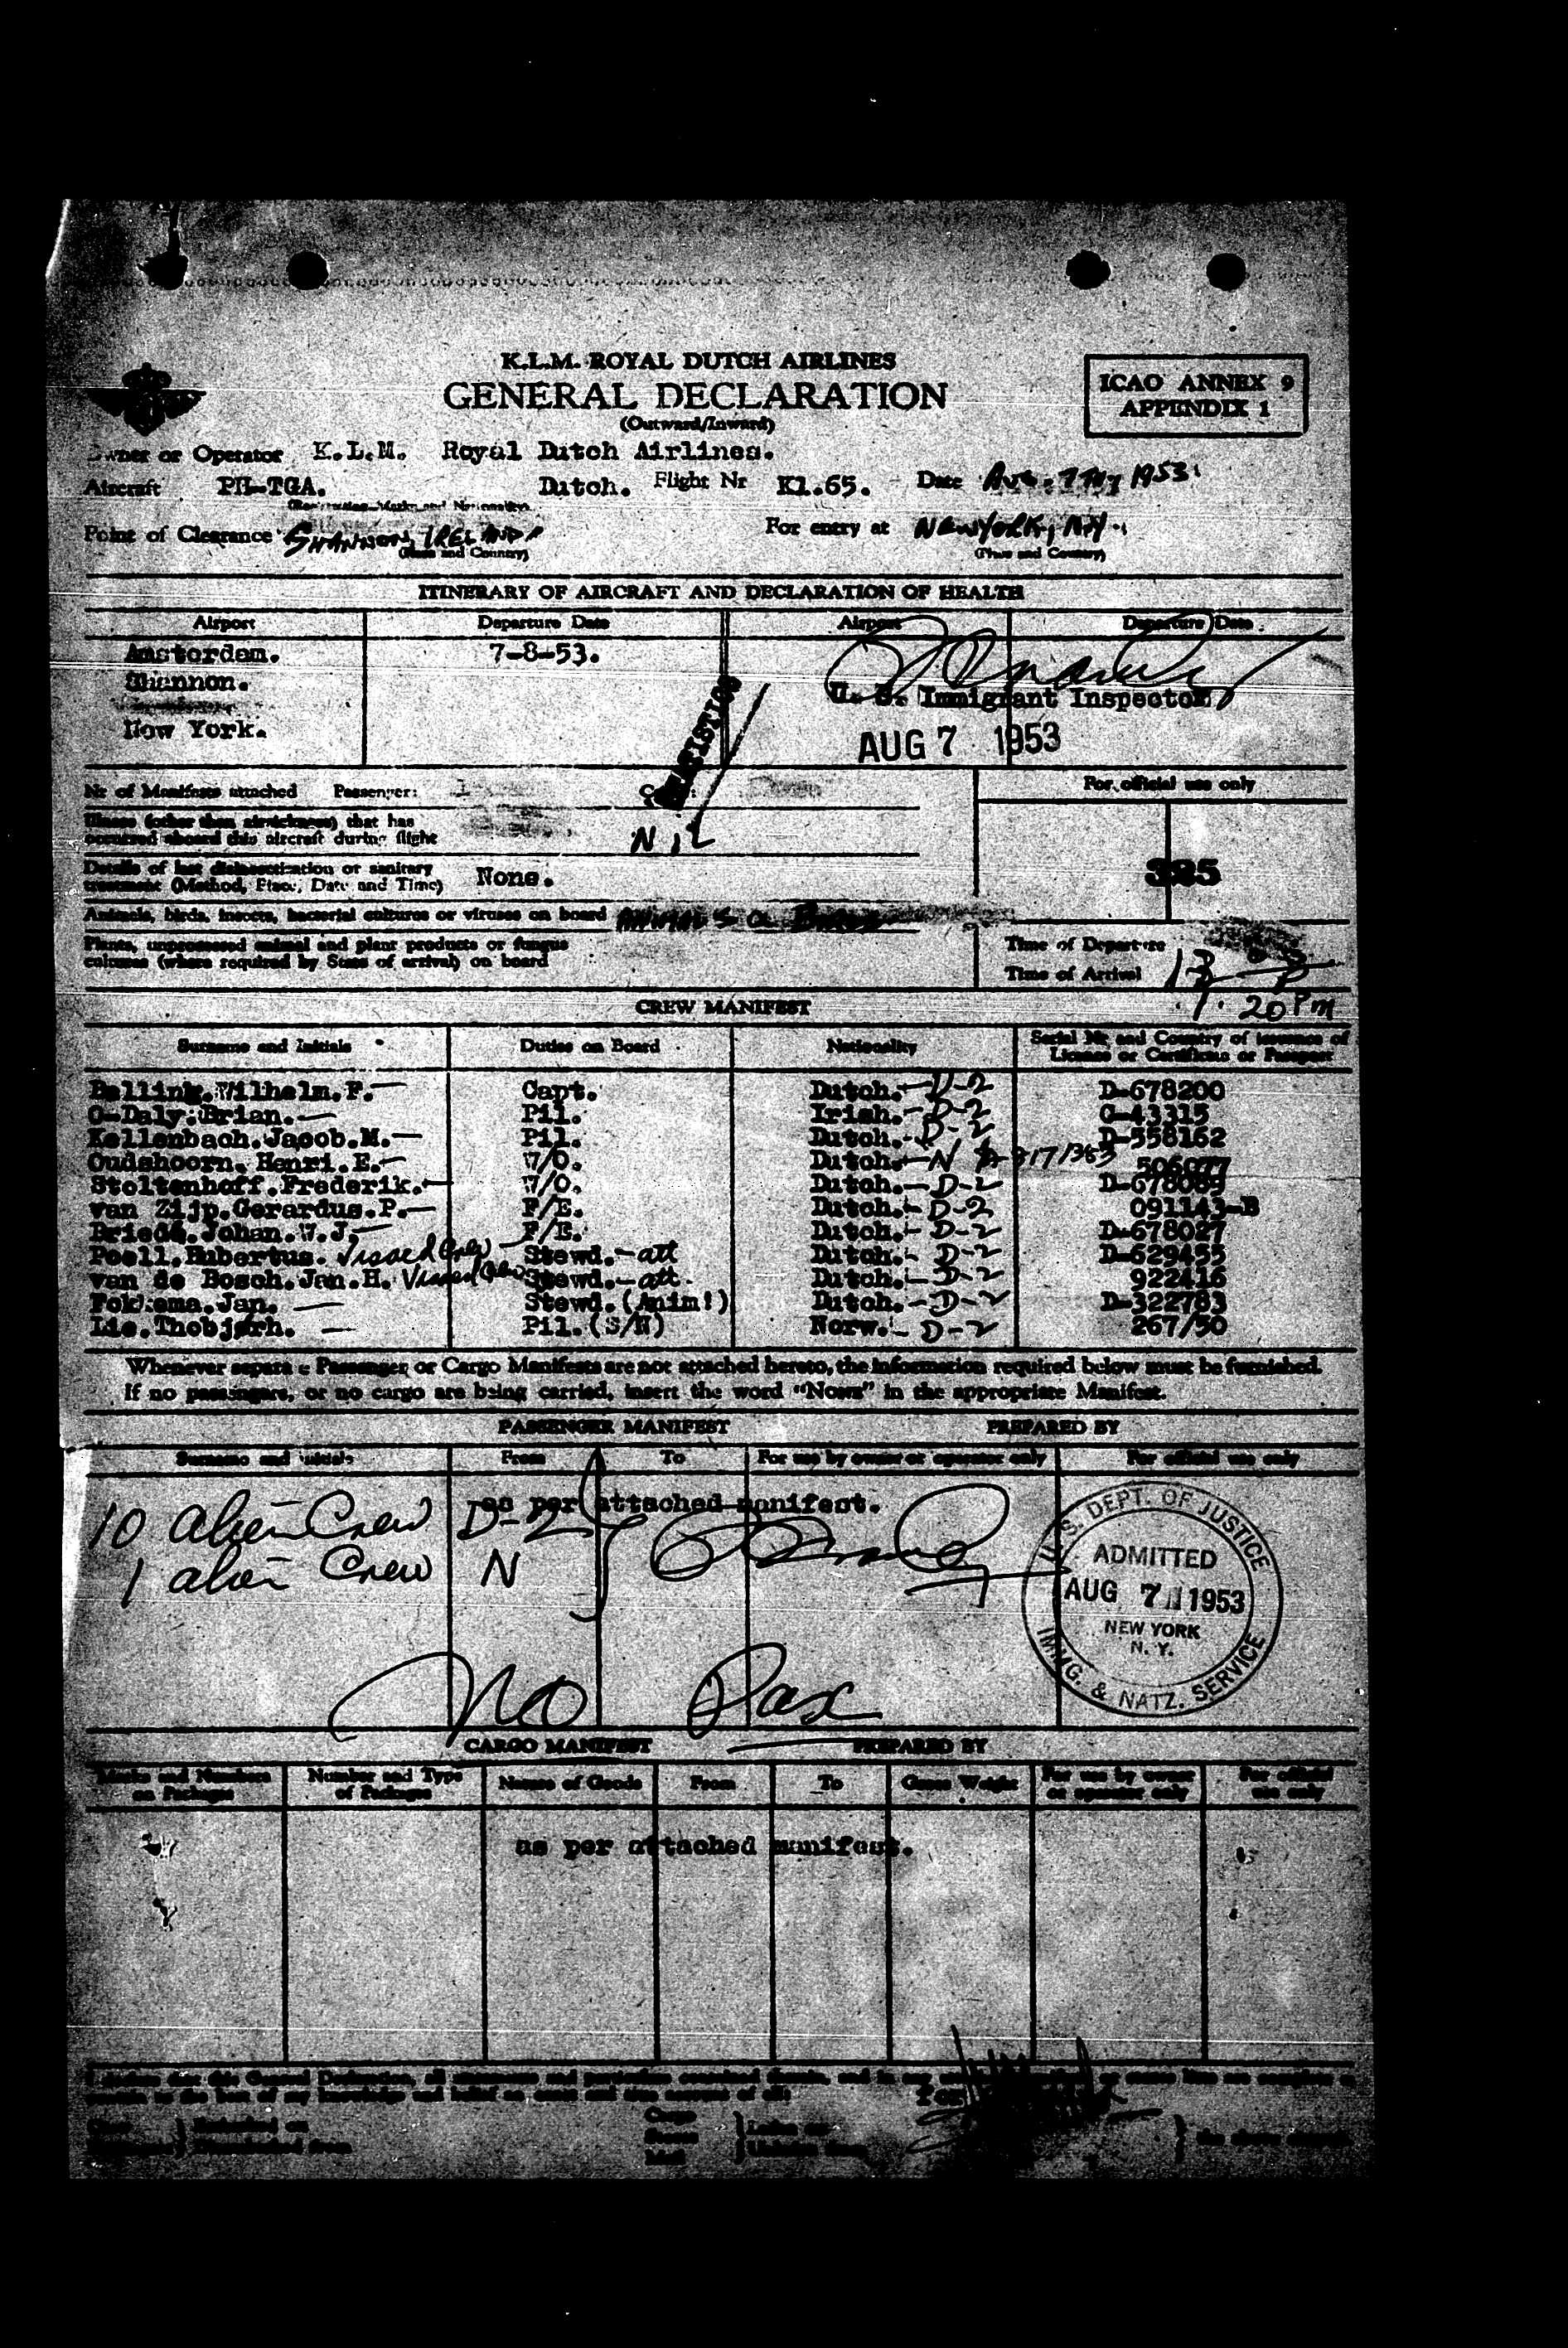 K.L.M. ROYAL DUTCH AIRLINES
GENERAL DECLARATION
(Outward/Inward)
ICAO ANNEX 9
APPENDIX 1
Owner or Operator K.L.M. Royal Dutch Airlines.
Aircraft PH-TGA. Dutch. Flight Nr Kl.65. Date Aug. 7 1953
(Registration Marks and Nationality)
Point of Clearance SHANNON, IRELAND For entry at NEW YORK, NY.
(Place and Country) (Place and Country)
ITINERARY OF AIRCRAFT AND DECLARATION OF HEALTH
Airport Departure Date Airport Departure Date
Amsterdam. 7-8-53.
Shannon.
U. S. Immigrant Inspector
New York.
AUG 7 1953
Nr of Manifests attached Passenger:
For official use only
Illness (other than airsickness) that has
occurred aboard this aircraft during flight NIL
Details of last disinsectization or sanitary
treatment (Method, Place, Date and Time) None.
325
Animals, birds, insects, bacterial cultures or viruses on board ANIMALS
Plants, unprocessed animal and plant products or fungus
cultures (where required by State of arrival) on board
Time of Departure
Time of Arrival
1.20 Pm
CREW MANIFEST
Surname and Initials Duties on Board Nationality Serial Nr and Country of issuance of
Licence or Certificate or Passport
Bellink.Wilhelm.F.— Capt. Dutch.—D-2 D-678200
O-Daly.Brian.— Pil. Irish.-D-2 C-43315
Kellenbach.Jacob.M.— Pil. Dutch.-D-2 D-558162
Oudshoorn. Henri.E.— W/O. Dutch.—N 506077
Stoltenhoff.Frederik.— W/O. Dutch.—D-2 D-678089
van Zijp.Gerardus.P.— F/E. Dutch.-D-2 091143-B
Briedé.Johan.W.J.— F/E. Dutch.-D-2 D-678027
Poell.Hubertus. Vissed Crew — Stewd.—att Dutch.-D-2 D-629455
van de Bosch.Jan.H. Vissed Stewd.—att. Dutch.-D-2 922416
Fokkema.Jan. — Stewd.(Anim!) Dutch.-D-2 D-322783
Lie.Thobjørh. — Pil.(S/N) Norw.-D-2 267/50
Whenever separate Passenger or Cargo Manifests are not attached hereto, the information required below must be furnished.
If no passengers, or no cargo are being carried, insert the word "None" in the appropriate Manifest.
PASSENGER MANIFEST PREPARED BY
Surname and initials From To For use by owner or operator only For official use only
as per attached manifest.
10 alien Crew D-2
1 alien Crew N
U.S. DEPT. OF JUSTICE
ADMITTED
AUG 7 1953
NEW YORK
N. Y.
IMMG. & NATZ. SERVICE
No Pax
CARGO MANIFEST PREPARED BY
Marks and Numbers
on Packages Number and Type
of Packages Nature of Goods From To Gross Weight For use by owner
or operator only For official
use only
as per attached manifest.